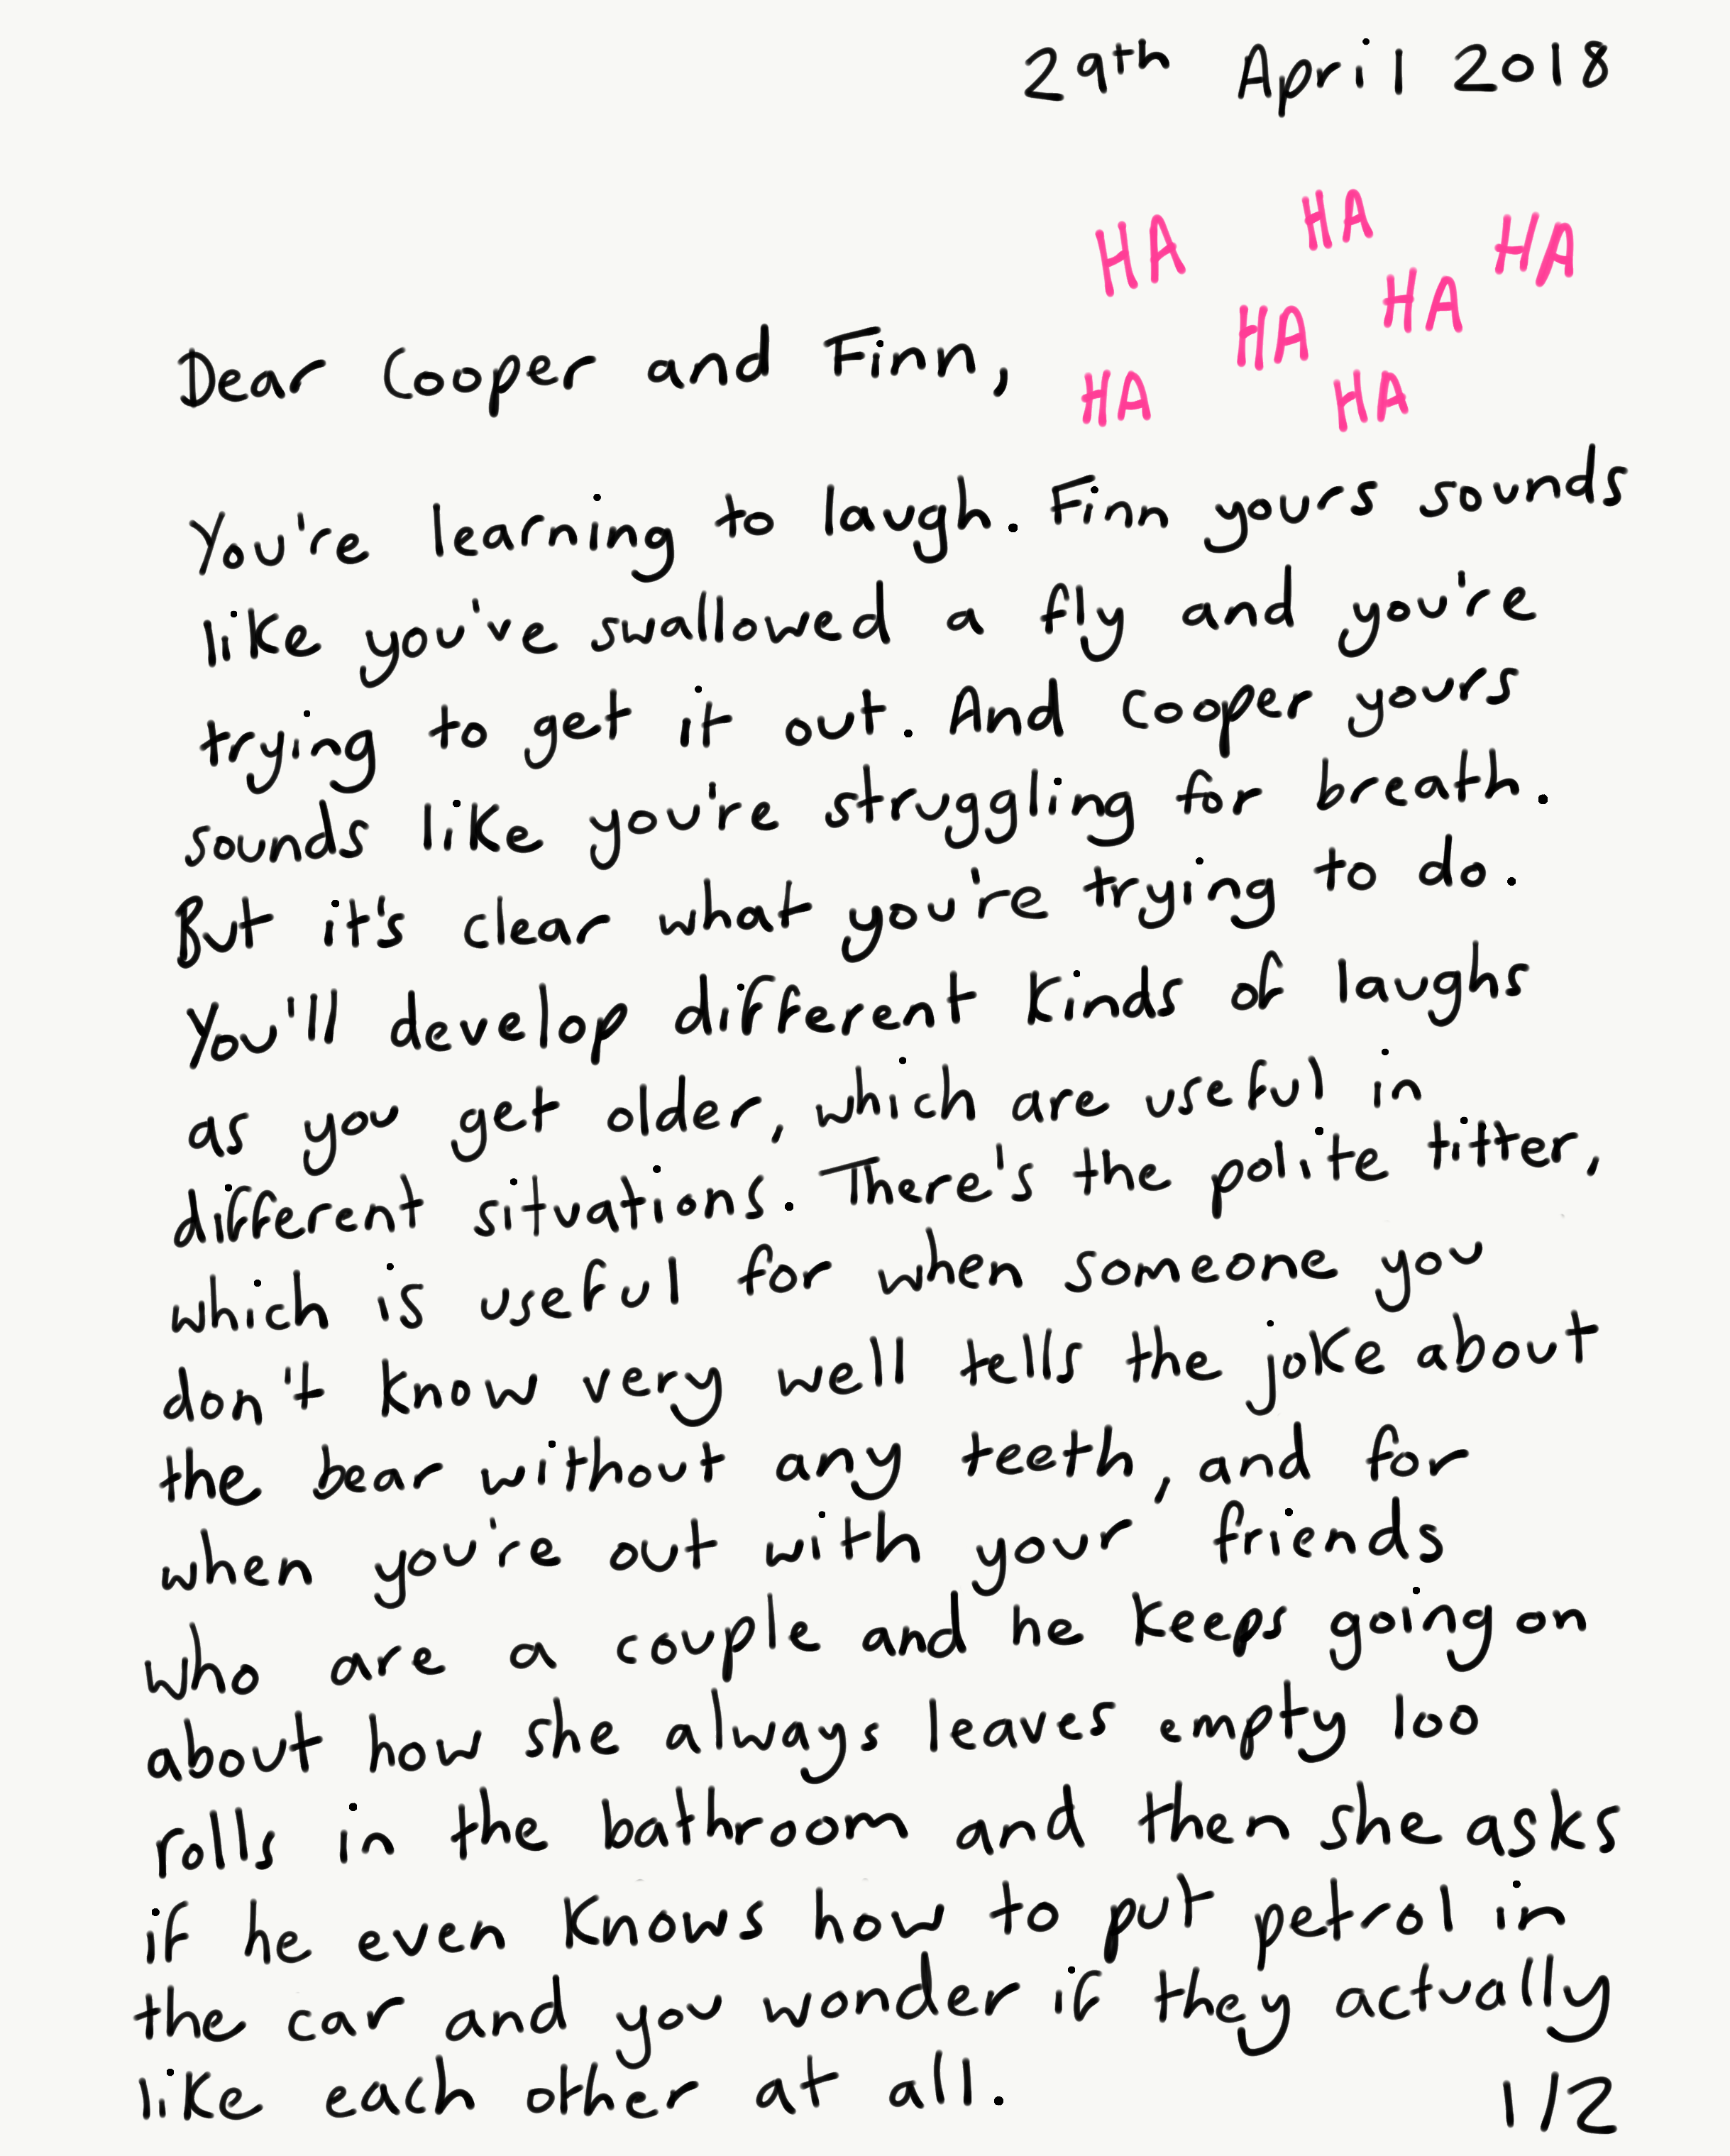 29th April 2018
HA HA HA
HA HA
HA HA
Dear Cooper and Finn,
You're learning to laugh. Finn yours sounds
like you've swallowed a fly and you're
trying to get it out. And Cooper yours
sounds like you're struggling for breath.
But it's clear what you're trying to do.
You'll develop different kinds of laughs
as you get older, which are useful in
different situations. There's the polite titter,
which is useful for when someone you
don't know very well tells the joke about
the bear without any teeth, and for
when you're out with your friends
who are a couple and he keeps going on
about how she always leaves empty loo
rolls in the bathroom and then she asks
if he even knows how to put petrol in
the car and you wonder if they actually
like each other at all.
1/2